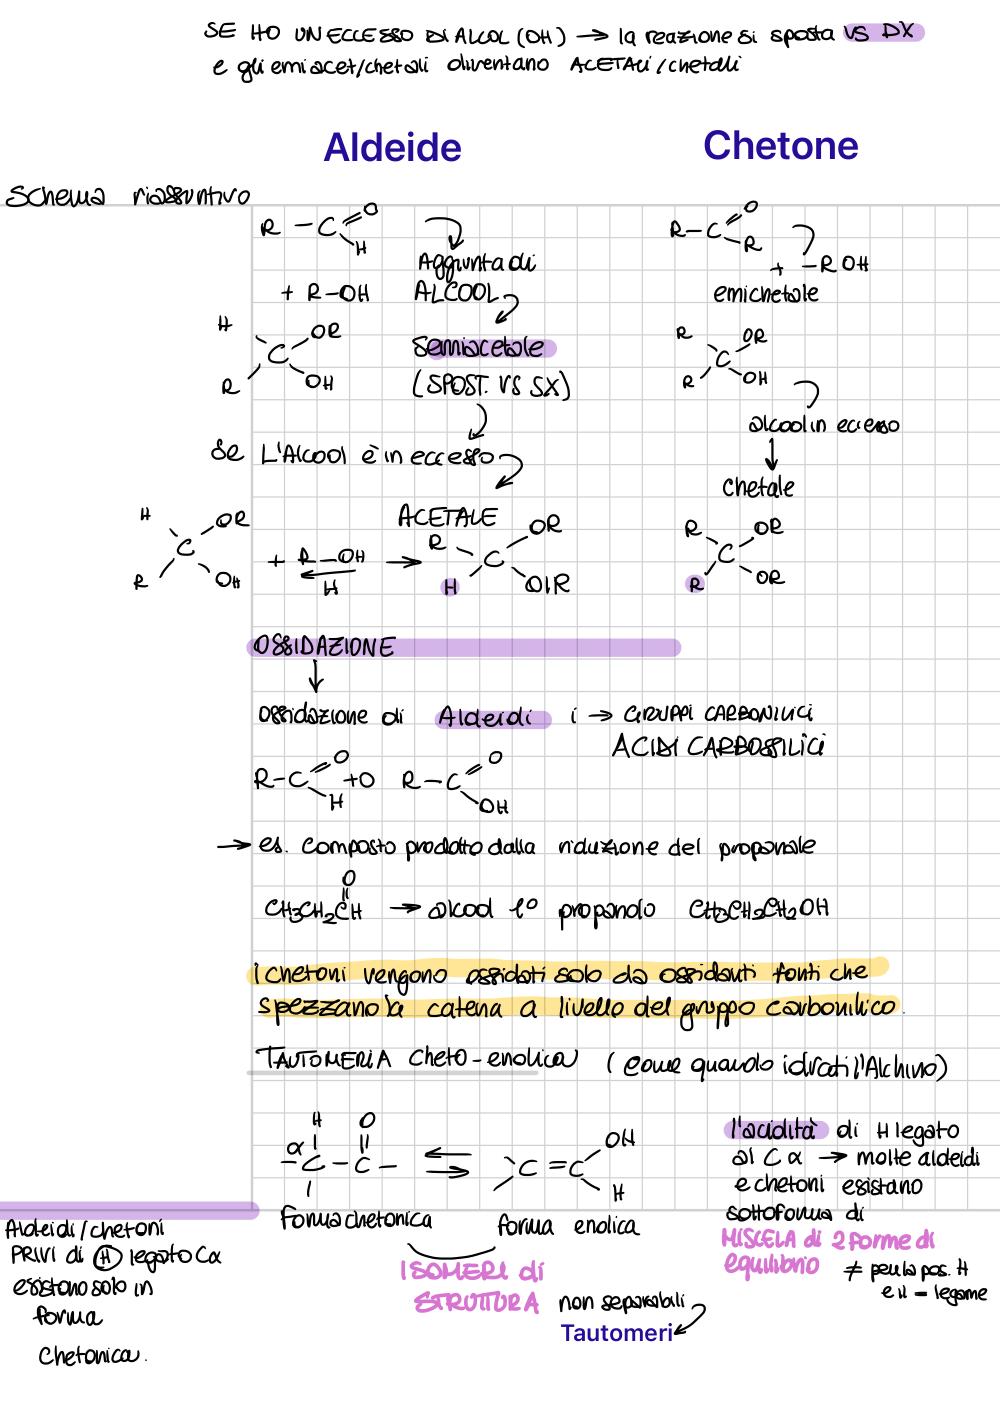 SE HO UN ECCESSO DI ALCOL (OH) → la reazione si sposta VS DX
e gli emiacet/chetali diventano ACETALI/chetali
Aldeide Chetone
Schema riassuntivo
R - C = O
H
Aggiunta di
+ R-OH ALCOOL
H OR
C
R OH
Semiacetale
(SPOST. VS SX)
Se L'Alcool è in eccesso
ACETALE
H OR
C
R OH
+ R-OH →
H
R OR
C
H OR
R-C = O
R
+ -ROH
emichetale
R OR
C
R OH
alcool in eccesso
↓
Chetale
R OR
C
R OR
OSSIDAZIONE
↓
ossidazione di Aldeidi i → GRUPPI CARBONILICI
ACIDI CARBOSSILICI
R-C = O +O R-C = O
H OH
→ es. composto prodotto dalla riduzione del propanale
O
CH3CH2CH → alcool 1° propanolo CH3CH2CH2OH
i chetoni vengono ossidati solo da ossidanti forti che
spezzano la catena a livello del gruppo carbonilico.
TAUTOMERIA Cheto-enolica (come quando idrati l'Alchino)
H O
α
-C-C- ⇌ C=C
OH
H
Forma chetonica forma enolica
ISOMERI di
STRUTTURA non separabili
Tautomeri
l'acidità di H legato
al C α → molte aldeidi
e chetoni esistano
sottoforma di
MISCELA di 2 forme di
equilibrio ≠ per la pos. H
e il = legame
Aldeidi/chetoni
PRIVI di H legato Cα
esistono solo in
forma
Chetonica.